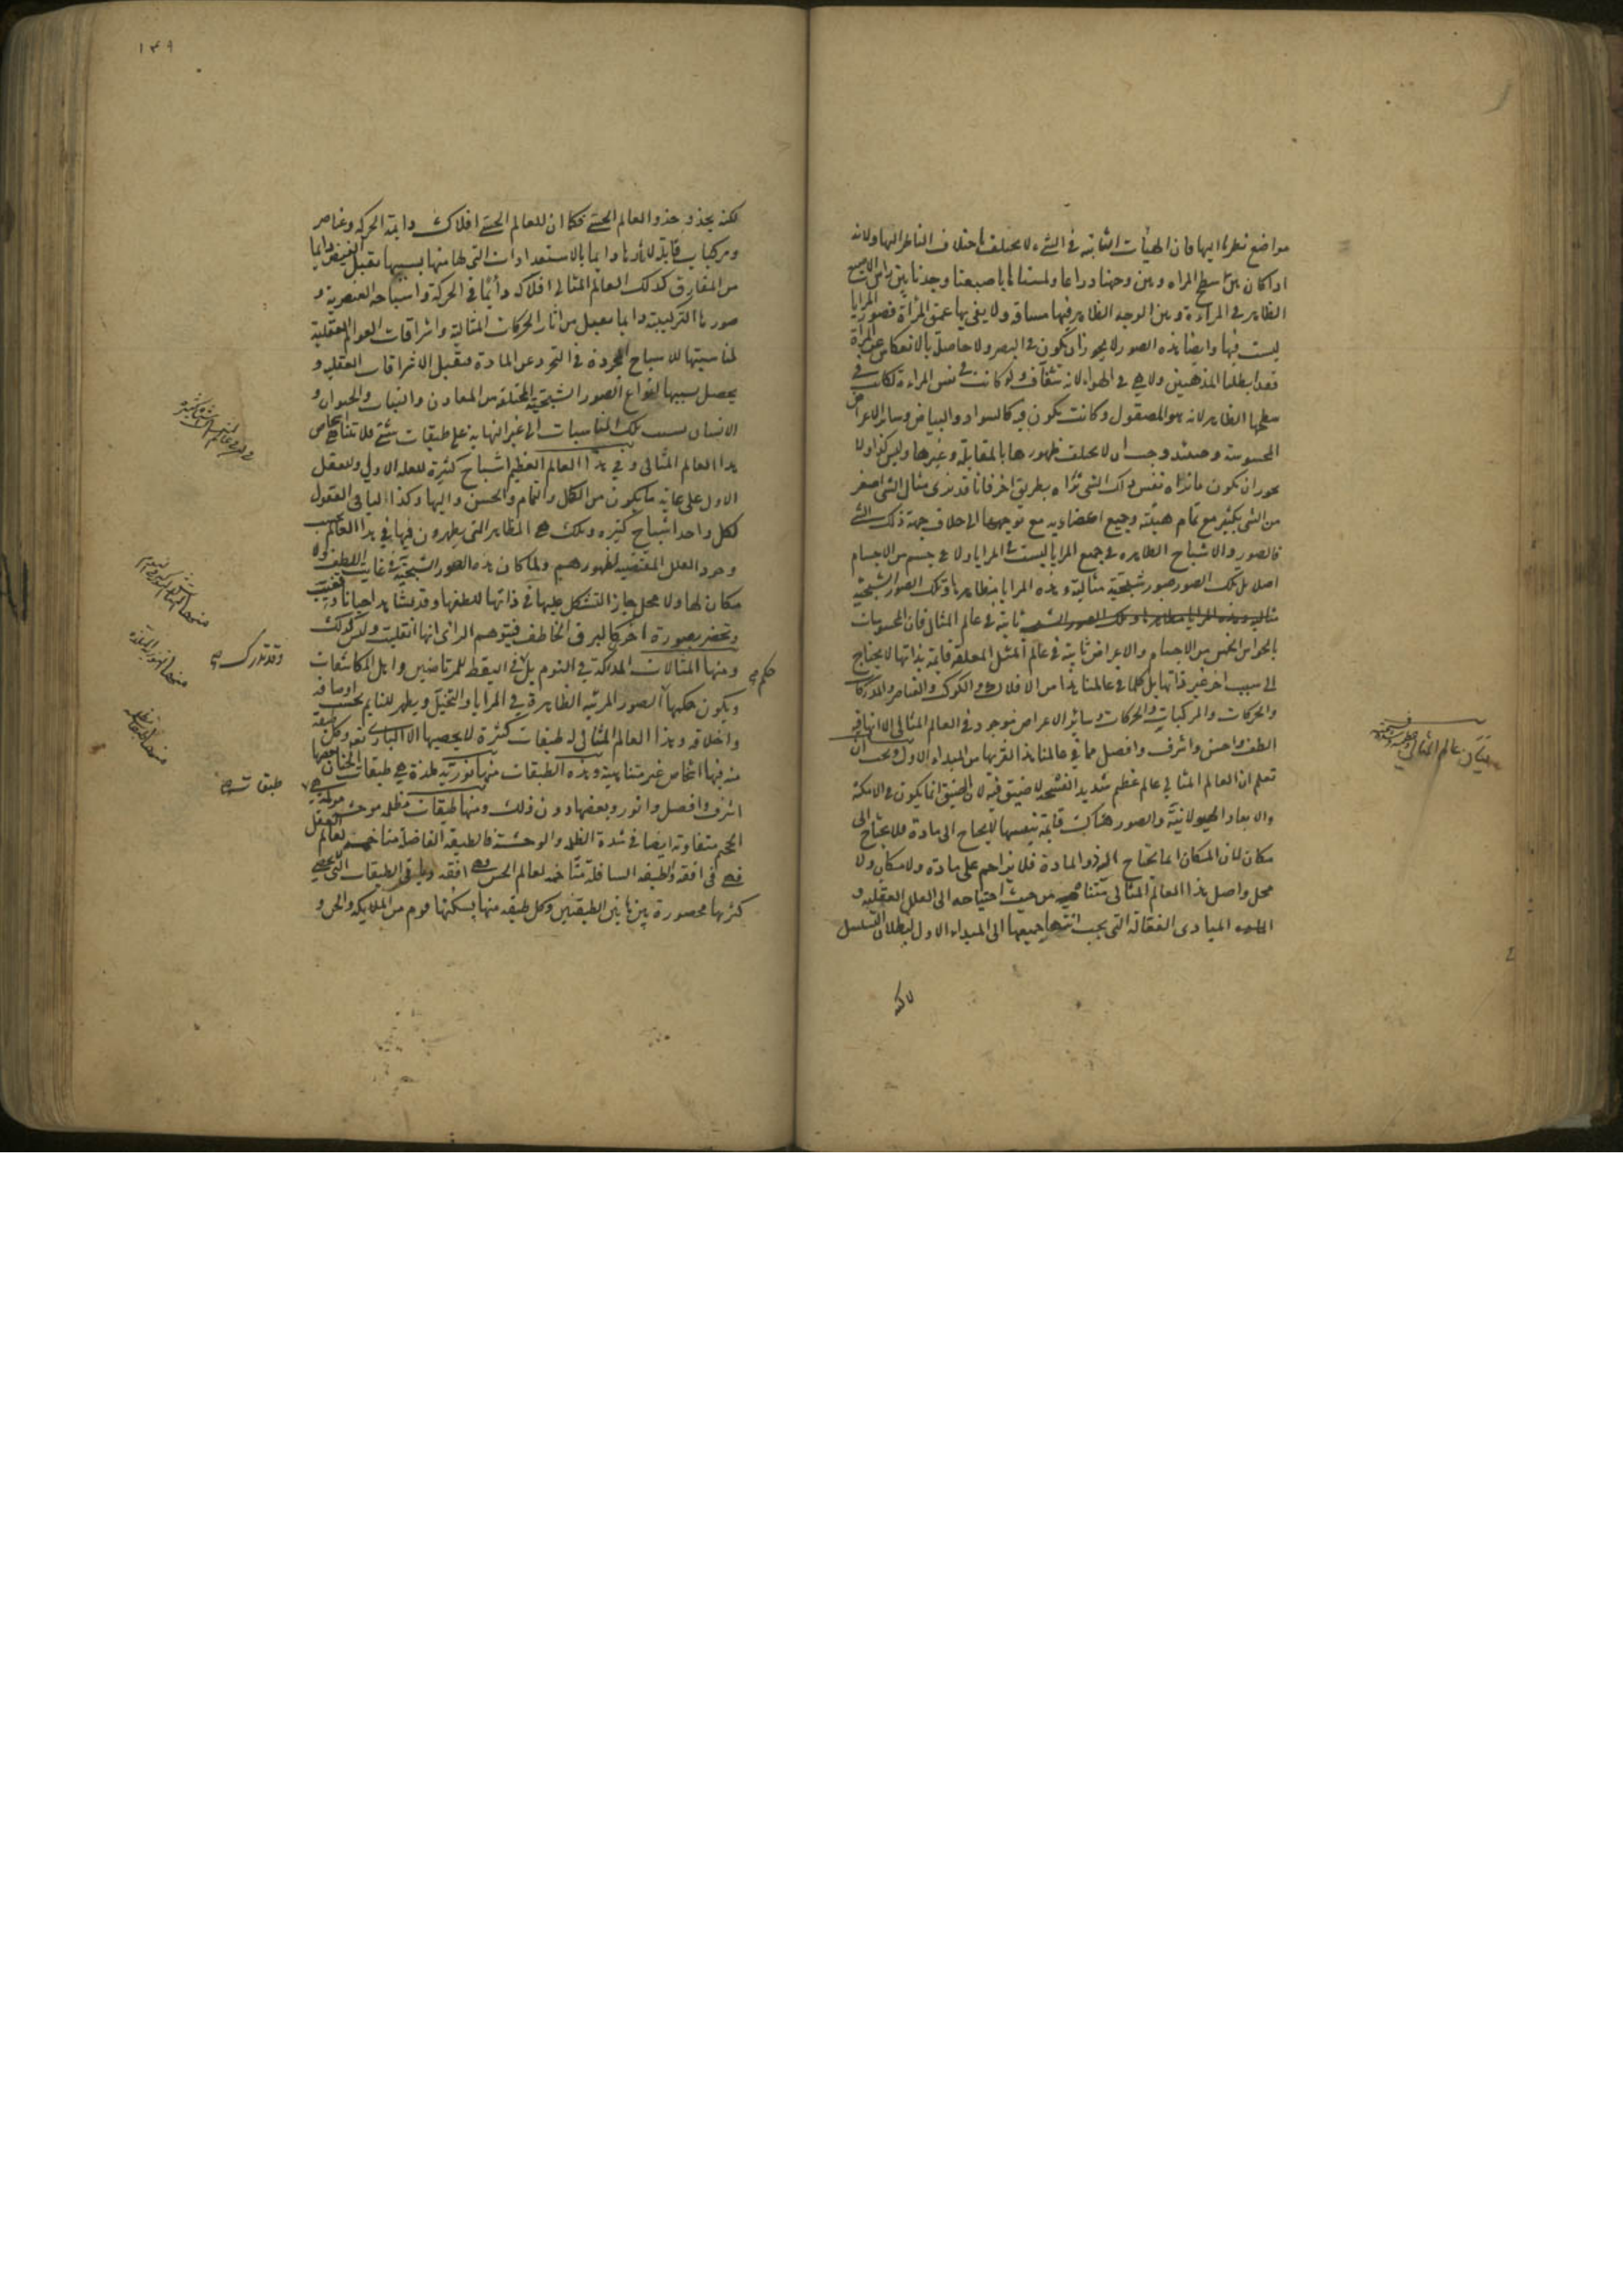 مواضع نظرنا اليها فان الهيآت الثابتة فى الشىء لا يختلف باختلاف الناظر اليها ولانه
اذا كان بين سطح المراه وبين وجهنا ذراعا ولمسناها باصبعنا وجدنا بين راس الاصبع
الظاهر فى المراءة وبين الوجه الظاهر فيها مسافة ولا يفى بها عمق المرآة فصور المرايا
ليست فيها وايضا هذه الصور لا يجوز ان يكون فى البصر ولا حاصلة بالانعكاس عن المرآة
فقد ابطلنا المذهبين ولا هى فى الهواء لانه شفاف ولو كانت فى نفس المراءة لكانت فى
سطحها الظاهر لانه هو المصقول وكانت يكون فيه كالسواد والبياض وسائر الاعراض
المحسوسة وحينئذ وجب ان لا يختلف ظهورها بالمقابلة وغيرها وليس كذا ولا
يجوز ان يكون ما نراه نفس ذلك الشى نراه بطريق اخر فانا قد نرى مثال الشى اصغر
من الشى بكثير مع تمام هيئته وجميع اعضاويه مع توجهها الى خلاف جهة ذلك الشى
فالصور والاشباح الظاهره فى جميع المرايا ليست فى المرايا ولا فى جسم من الاجسام
اصلا بل تلك الصور صور شبحية مثالية وهذه المرايا مظاهرها وتلك الصور الشبحية
مثاليه وهذه المرايا مظاهرها وتلك الصور الشبحيه ثابتة فى عالم المثال فان المحسوسات
بالحواس الخمس من الاجسام والاعراض ثابتة فى عالم المثل المعلقة قائمة بذاتها لا يحتاج
الى سبب اخر غير ذاتها بل كلما فى عالمنا هذا من الافلاك والكوكب والعناصر والمدركات
والحركات والمركبات والحركات وسائر الاعراض موجود فى العالم المثالى الا انها فيه
الطف واحسن واشرف وافضل مما فى عالمنا هذا لقربها من المبداء الاول ويجب ان
تعلم ان العالم المثالى عالم عظيم شديد الفسحة لا ضيق فيه لان الضيق انما يكون فى الامكنة
والابعاد الهيولانية والصور هناك قايمة بنفسها لا يحتاج الى مادة فلا يحتاج الى
مكان لان المكان انما يحتاج اليه ذو المادة فلا تزاحم على مادة ولا مكان ولا
محل واصل هذا العالم المثالى متناهى من حيث احتياجه الى العلل العقليه و
المبادى الفعالة التى يجب انتهاء جميعها الى المبداء الاول لبطلان التسلسل
لاكنه
بيان عالم المثالى وعظمته
١٤٩
لكنه يحذو حذو العالم الحسى فكما ان للعالم الحسى افلاك دايمة الحركة وعناصر
ومركبات قابلة لاثارها دايما بالاستعدادات التى لها منها بسببها يقبل الفيض دايما
من المفارق كذلك العالم المثالى افلاكه دائما فى الحركة واشباحه العنصرية و
صورها التركيبية دايما يقبل من اثار الحركات المثالية واشراقات العوالم العقلية
لمناسبتها للاشباح المجردة فى التجرد عن المادة فتقبل الاشراقات العقليه و
يحصل بسببها انواع الصور الشبحية المختلفة من المعادن والنبات والحيوان و
الانسان بسبب تلك المناسبات الى غير النهاية على طبقات شتى فلا تتناهى اشخاص
هذا العالم المثالى وفى هذا العالم العظيم اشباح كثيرة للعلة الاولى وللعقل
الاول على غاية ما يكون من الكمال والتمام والحسن والبها وكذا لباقى العقول
لكل واحد اشباح كثيره وتلك هى المظاهر التى يظهرون فيها فى هذا العالم بحسب
وجود العلل المقتضيه لظهورهم ولما كان هذه الصور الشبحية فى غاية اللطف ولا
مكان لها ولا محل جاز التشكل عليها فى ذاتها للطفها وقد يشاهد احيانا وتغيب
وتحضر بصورة اخرى كالبرق الخاطف فيتوهم الرائى انها انقلبت وليس كذلك
ومنها المثالات المدركة فى النوم بل فى اليقظ للمرتاضين واهل المكاشفات
ويكون حكمها الصور المرئيه الظاهرة فى المرايا والتخيل ويظهر للنايم بحسب اوصافه
واخلاقه وهذا العالم المثالى له طبقات كثرة لا يحصيها الا البارى تعـ وكل طبقة
منه فيها اشخاص غير متناهية وهذه الطبقات منها نورية ملذة هى طبقات الجنان بعضها
اشرف وافضل وانور وبعضها دون ذلك ومنها طبقات مظلمه موحشه مولمة هى
الجحيم متفاوتة ايضا فى شدة الظلمه والوحشة فالطبقه الفاضلة متاخمة لعالم العقل
فهى فى افقه والطبقه السافلة متاخمه لعالم الحس وهى افقه وباقى الطبقات التى لا يحصى
كثرتها محصورة بين هاتين الطبقتين وكل طبقه منها يسكنها قوم من الملايكه والجن و
حكم
وقد تدرك
طبقات